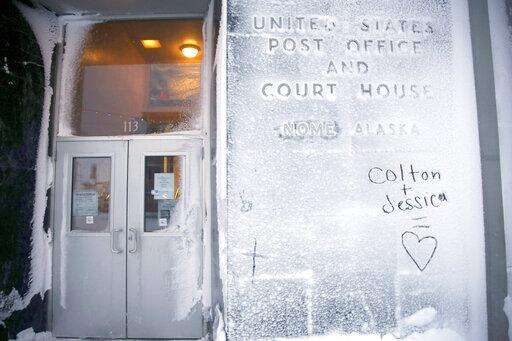 113
UNITED STATES
POST OFFICE
AND
COURT HOUSE
NOME ALASKA
Colton
+
Jessica
=